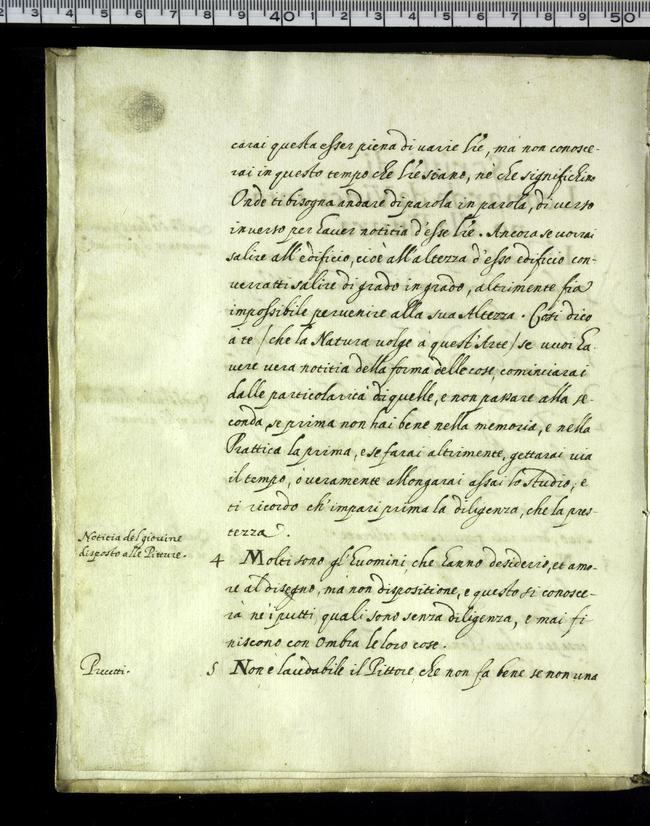 carai questa esser piena di varie lre, mà non conosce-
rai in questo tempo che lre siano, nè che significhino
Onde ti bisogna andare di parola in parola, di verso
in verso per hauer notitia d'esse lre. Ancora se vorrai
salire all'edificio, cioè all'altezza d'esso edificio con-
verratti salire di grado in grado, altrimente fia
impossibile pervenire alla sua Altezza. Così dico
à te / che la Natura volge à quest'Arte / se vuoi ha-
vere vera notitia della forma delle cose, cominciarai
dalle particolarità di quelle, e non passare alla se-
conda, se prima non hai bene nella memoria, e nella
Prattica la prima, e se farai altrimente, gettarai via
il tempo, ò veramente allongarai assai lo studio, e
ti ricordo ch'impari prima la diligenza, che la pres-
tezza.
Notitia del giovine
disposto alle Pitture.
4 Molti sono gl'huomini, che hanno desiderio, et amo-
re al disegno, mà non dispositione, e questo si conosce-
rà ne i putti, quali sono senza diligenza, e mai fi-
niscono con ombra le loro cose.
Precetti.
5 Non è laudabile il Pittore, che non fa bene se non una